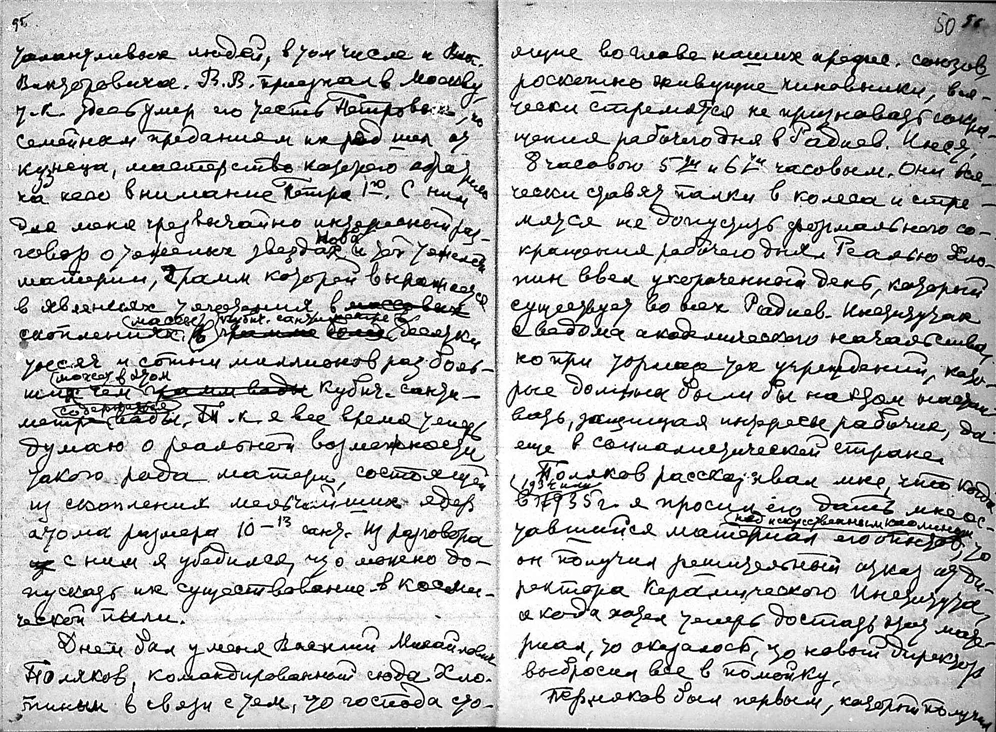 95
талантливых людей, в том числе и Вик.
Викторовича. В.В. приезжал в Москву,
т.к. здесь умер его тесть Петров. По
семейным преданиям их род шел от
кузнеца, мастерство которого обра-
тило внимание Петра I го. С ним
для меня чрезвычайно интересный раз-
говор о тяжелых звездах и той тяжелой
материи, грамм которой выражается
в явлениях тяготения в массовых
скоплениях (массы) в кубич. сантиметре в десятки
тысяч и сотни миллионов раз боль-
ших чем (может в этом) грамм воды кубич. санти-
метре воды, т.к. я все время теперь
думаю о реальной возможности
такого рода материи, состоящей
из скопления мельчайших ядер
атома размера 10-13 сант. Из разговора
с ним я убедился, что можно до-
пускать их существование в косми-
ческой пыли.
Днем был у меня Василий Михайлович
Поляков, командированный сюда Хло-
пиным в связи с тем, что господа сто-
50
ящие во главе наших профес. союзов
роскошно живущие чиновники, вся-
чески стремятся не признавать сокра-
щения рабочего дня в Радиев. Инст.,
8 часового 5 ти и 6 ти часовым. Они вся-
чески ставят палки в колеса и стре-
мятся не допустить формального со-
кращения рабочего дня. Реально Хло-
пин ввел укороченный день, который
существует во всех Радиев. Институтах
с ведома академического начальства,
но при тормозе тех учреждений, кото-
рые должны были бы на этом настаи-
вать, защищая интересы рабочих, да
еще в социалистической стране.
Поляков рассказывал мне, что когда
в 1935 г. (1934 или) я просил его дать мне ос-
тавшийся материал над искусственным каолином, то
он получил решительный отказ от ди-
ректора Керамического Института,
а когда хотел теперь достать этот мате-
риал, то оказалось, что новый директор
выбросил все в помойку.
Поляков был первым, который получил